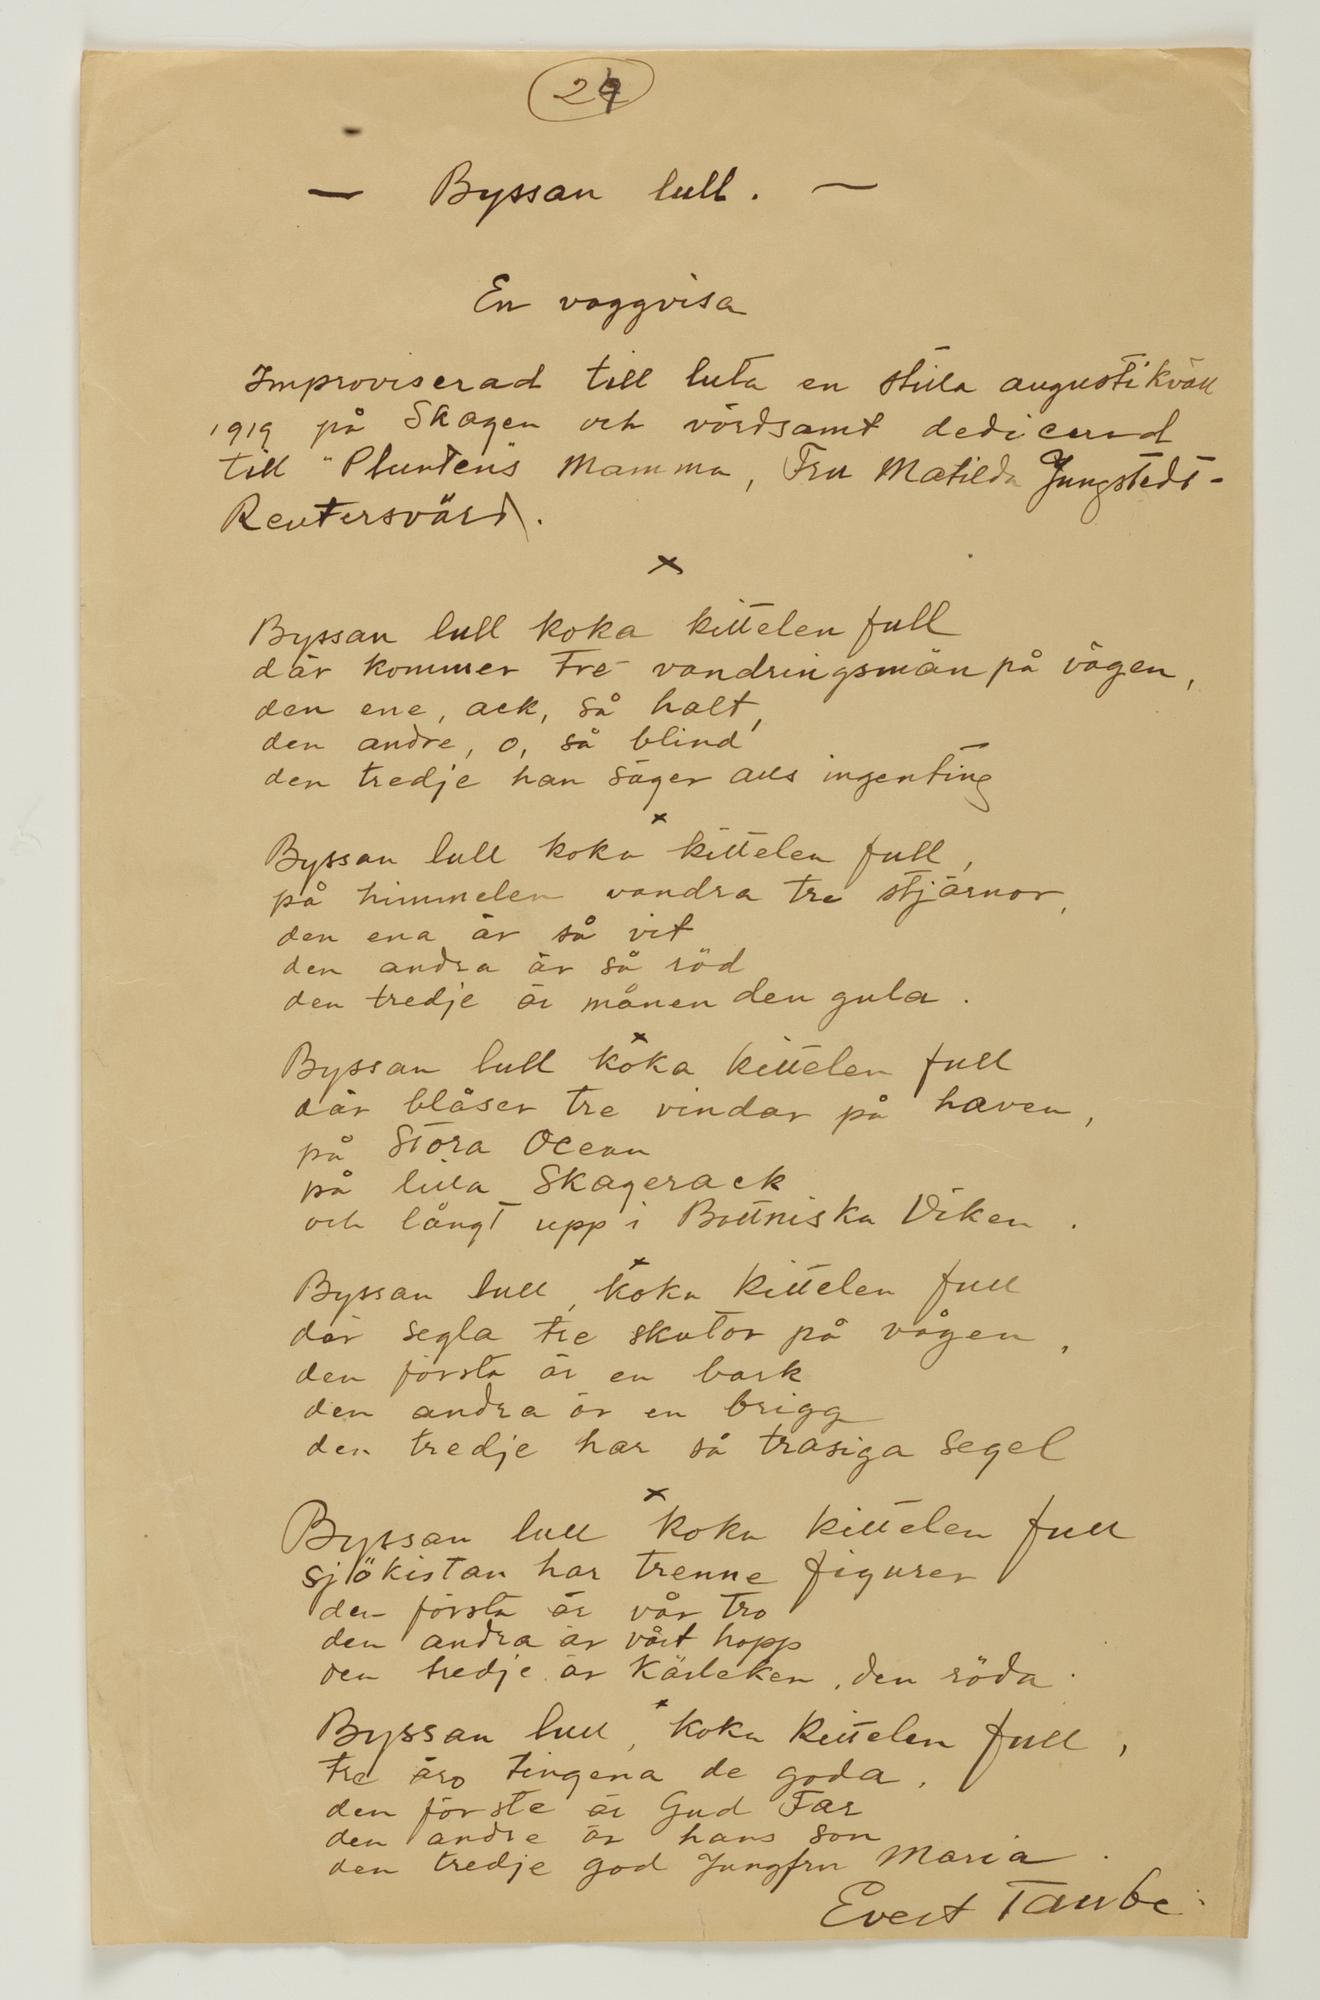 — Byssan lull. —
En vaggvisa
Improviserad till luta en stilla augustikväll
1919 på Skagen och vördsamt dedicerad
till "Pluntens" Mamma, Fru Matilda Jungstedt-
Reutersvärd.
x
Byssan lull koka kittelen full
där kommer tre vandringsmän på vägen,
den ene, ack, så halt,
den andre, o, så blind
den tredje han säger alls ingenting
x
Byssan lull koka kittelen full,
på himmelen vandra tre stjärnor,
den ena är så vit
den andra är så röd
den tredje är månen den gula.
x
Byssan lull koka kittelen full
där blåser tre vindar på haven,
på Stora Ocean
på lilla Skagerack
och långt upp i Bottniska Viken.
x
Byssan lull, koka kittelen full
där segla tre skutor på vågen,
den första är en bark
den andra är en brigg
den tredje har så trasiga segel
x
Byssan lull koka kittelen full
sjökistan har trenne figurer
den första är vår tro
den andra är vårt hopp
den tredje är Kärleken, den röda.
x
Byssan lull, koka kittelen full,
tre äro tingena de goda,
den förste är Gud Far
den andre är hans son
den tredje god Jungfru Maria.
Evert Taube.